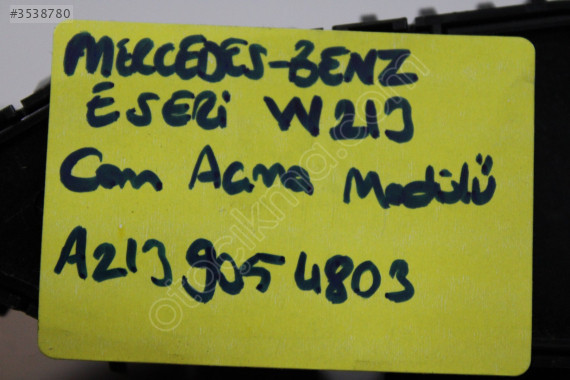 #3538780
MERCEDES-BENZ
E SERİ W213
Cam Açma Modülü
A213 905 4803
otocikma.com